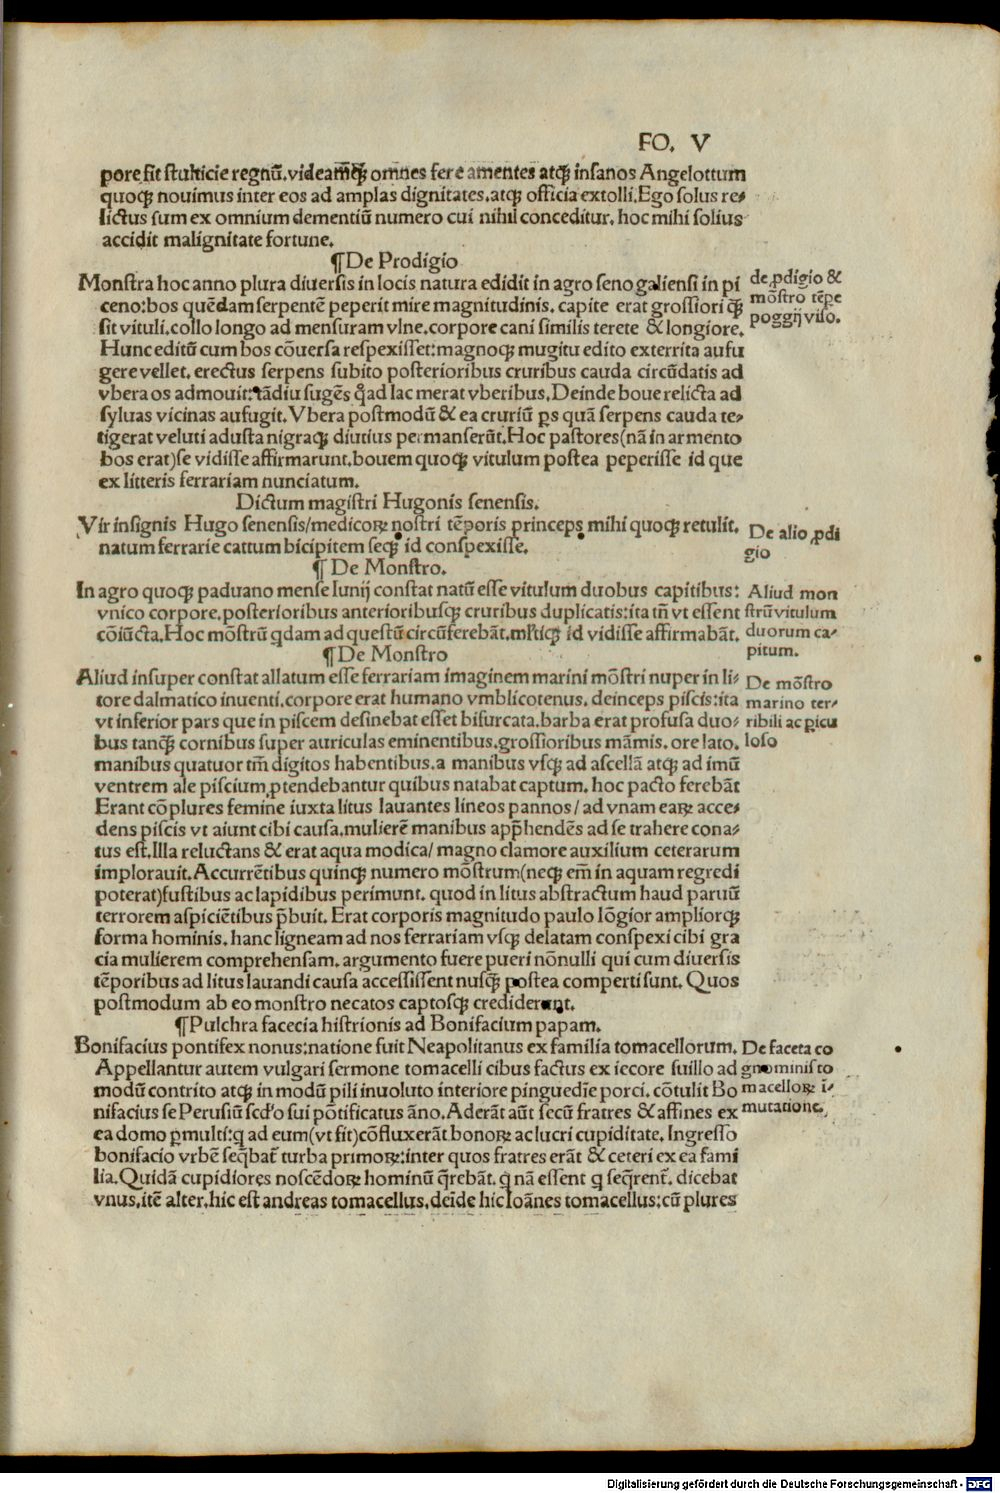 FO. V
pore sit stulticie regnū. videam⁹q̃ꝫ omnes fere amentes atqꝫ insanos Angelottum
quoqꝫ nouimus inter eos ad amplas dignitates. atqꝫ officia extolli. Ego solus re⸗
lictus sum ex omnium dementiū numero cui nihil conceditur. hoc mihi solius
accidit malignitate fortune.
¶De Prodigio
Monstra hoc anno plura diuersis in locis natura edidit in agro senogaliensi in pi
ceno: bos quēdam serpentē peperit mire magnitudinis. capite erat grossiori q̃ꝫ
sit vituli. collo longo ad mensuram vlne. corpore cani similis terete & longiore.
Hunc editū cum bos cōuersa respexisset: magnoqꝫ mugitu edito exterrita aufu
gere vellet. erectus serpens subito posterioribus cruribus cauda circūdatis ad
vbera os admouit: tādiu sugēs qͦad lac merat vberibus. Deinde boue relicta ad
syluas vicinas aufugit. Vbera postmodū & ea cruriū ꝑs quā serpens cauda te⸗
tigerat veluti adusta nigraqꝫ diutius permanserūt. Hoc pastores (nā in armento
bos erat) se vidisse affirmarunt. bouem quoqꝫ vitulum postea peperisse id que
ex litteris ferrariam nunciatum.
de ꝓdigio &
mōstro tēpe
poggij viso.
Dictum magistri Hugonis senensis.
Vir insignis Hugo senensis/medicoꝝ nostri tēporis princeps mihi quoqꝫ retulit.
natum ferrarie cattum bicipitem seqꝫ id conspexisse.
De alio ꝓdi
gio
¶ De Monstro.
In agro quoqꝫ paduano mense Iunij constat natū esse vitulum duobus capitibus:
vnico corpore. posterioribus anterioribusqꝫ cruribus duplicatis: ita tn̄ vt essent
cōiūcta. Hoc mōstrū qͥdam ad questū circūferebāt. mltiqꝫ id vidisse affirmabāt.
Aliud mon
strū vitulum
duorum ca⸗
pitum.
¶De Monstro
Aliud insuper constat allatum esse ferrariam imaginem marini mōstri nuper in li⸗
tore dalmatico inuenti. corpore erat humano vmblicotenus. deinceps piscis: ita
vt inferior pars que in piscem desinebat esset bifurcata. barba erat profusa duo⸗
bus tanq̃ꝫ cornibus super auriculas eminentibus. grossioribus māmis. ore lato.
manibus quatuor tm̄ digitos habentibus. a manibus vsqꝫ ad ascellā atqꝫ ad imū
ventrem ale piscium ꝓtendebantur quibus natabat captum. hoc pacto ferebāt
Erant cōplures femine iuxta litus lauantes lineos pannos / ad vnam eaꝝ acce⸗
dens piscis vt aiunt cibi causa. mulierē manibus app̄hendēs ad se trahere cona⸗
tus est. Illa reluctans & erat aqua modica/ magno clamore auxilium ceterarum
implorauit. Accurrētibus quinqꝫ numero mōstrum (neqꝫ em̄ in aquam regredi
poterat) fustibus ac lapidibus perimunt. quod in litus abstractum haud paruū
terrorem aspiciētibus p̄buit. Erat corporis magnitudo paulo lōgior ampliorqꝫ
forma hominis. hanc ligneam ad nos ferrariam vsqꝫ delatam conspexi cibi gra
cia mulierem comprehensam. argumento fuere pueri nōnulli qui cum diuersis
tēporibus ad litus lauandi causa accessissent nusq̃ꝫ postea comperti sunt. Quos
postmodum ab eo monstro necatos captosqꝫ crediderunt.
De mōstro
marino ter⸗
ribili ac ꝑicu
loso
¶Pulchra facecia histrionis ad Bonifacium papam.
Bonifacius pontifex nonus: natione fuit Neapolitanus ex familia tomacellorum.
Appellantur autem vulgari sermone tomacelli cibus factus ex iecore suillo ad
modū contrito atqꝫ in modū pili inuoluto interiore pinguedīe porci. cōtulit Bo
nifacius se Perusiū scd̓o sui pōtificatus āno. Aderāt aūt secū fratres & affines ex
ea domo ꝑmulti: qͥ ad eum (vt fit) cōfluxerāt bonoꝝ ac lucri cupiditate. Ingresso
bonifacio vrbē seq̄bat̄ turba primoꝝ: inter quos fratres erāt & ceteri ex ea fami
lia. Quidā cupidiores noscēdoꝝ hominū q̄rebāt. qͥ nā essent qͥ seq̄rent̄. dicebat
vnus. itē alter. hic est andreas tomacellus. deīde hic Ioānes tomacellus: cū plures
De faceta co
gnominis to
macelloꝝ ī⸗
mutatione.
Digitalisierung gefördert durch die Deutsche Forschungsgemeinschaft - DFG